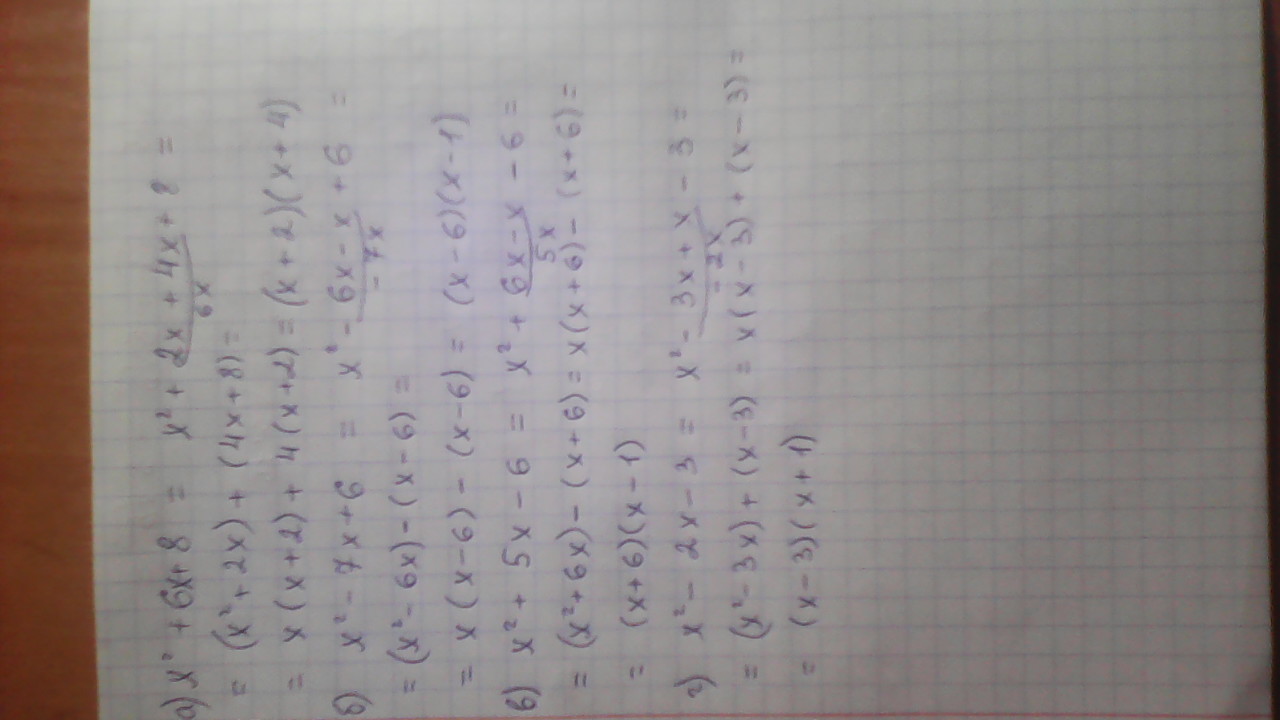 а) x² + 6x + 8 = x² + 2x + 4x + 8 =
6x
= (x² + 2x) + (4x + 8) =
= x (x + 2) + 4 (x + 2) = (x + 2)(x + 4)
б) x² - 7x + 6 = x² - 6x - x + 6 =
- 7x
= (x² - 6x) - (x - 6) =
= x (x - 6) - (x - 6) = (x - 6)(x - 1)
в) x² + 5x - 6 = x² + 6x - x - 6 =
5x
= (x² + 6x) - (x + 6) = x (x + 6) - (x + 6) =
= (x + 6)(x - 1)
г) x² - 2x - 3 = x² - 3x + x - 3 =
- 2x
= (x² - 3x) + (x - 3) = x (x - 3) + (x - 3) =
= (x - 3)(x + 1)